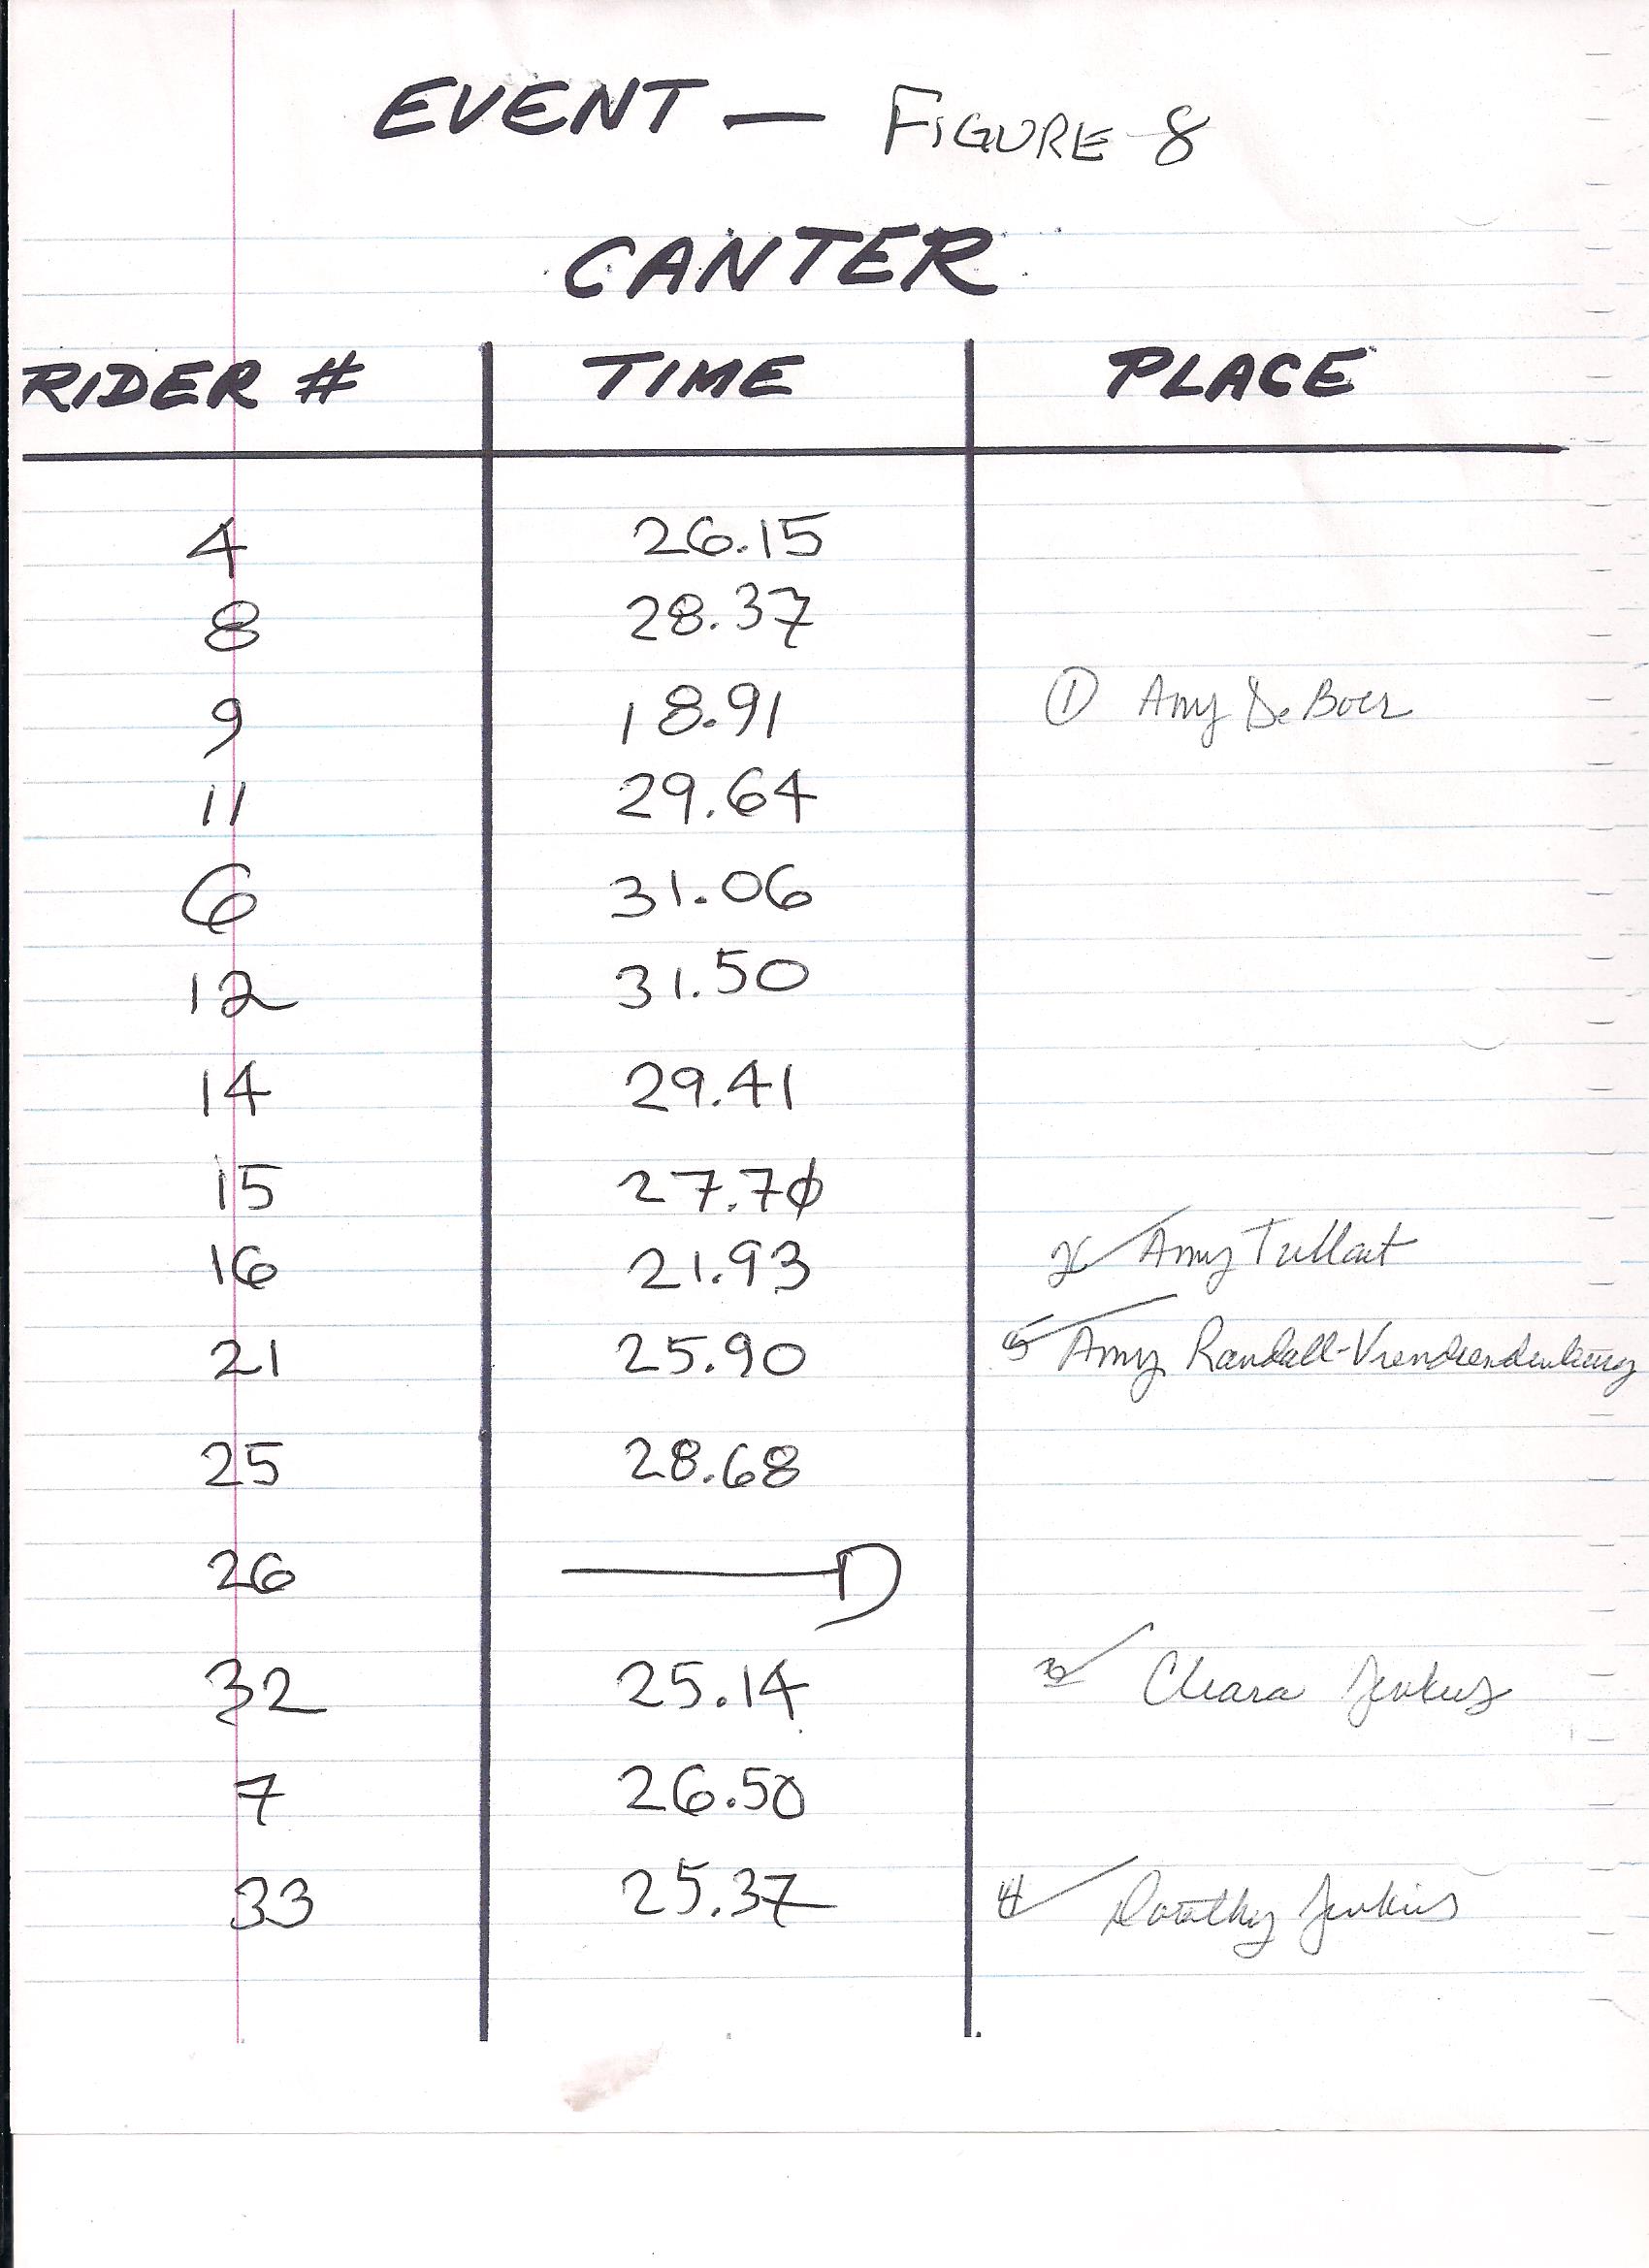 EVENT — FIGURE 8
CANTER
RIDER # TIME PLACE
4 26.15
8 28.37
9 18.91 ① Amy DeBoer
11 29.64
6 31.06
12 31.50
14 29.41
15 27.70
16 21.93 2 Amy
21 25.90 5 Amy Randall-
25 28.68
26 D
32 25.14 3 Cheara Jenkins
7 26.50
33 25.37 4 Dorothy Jenkins